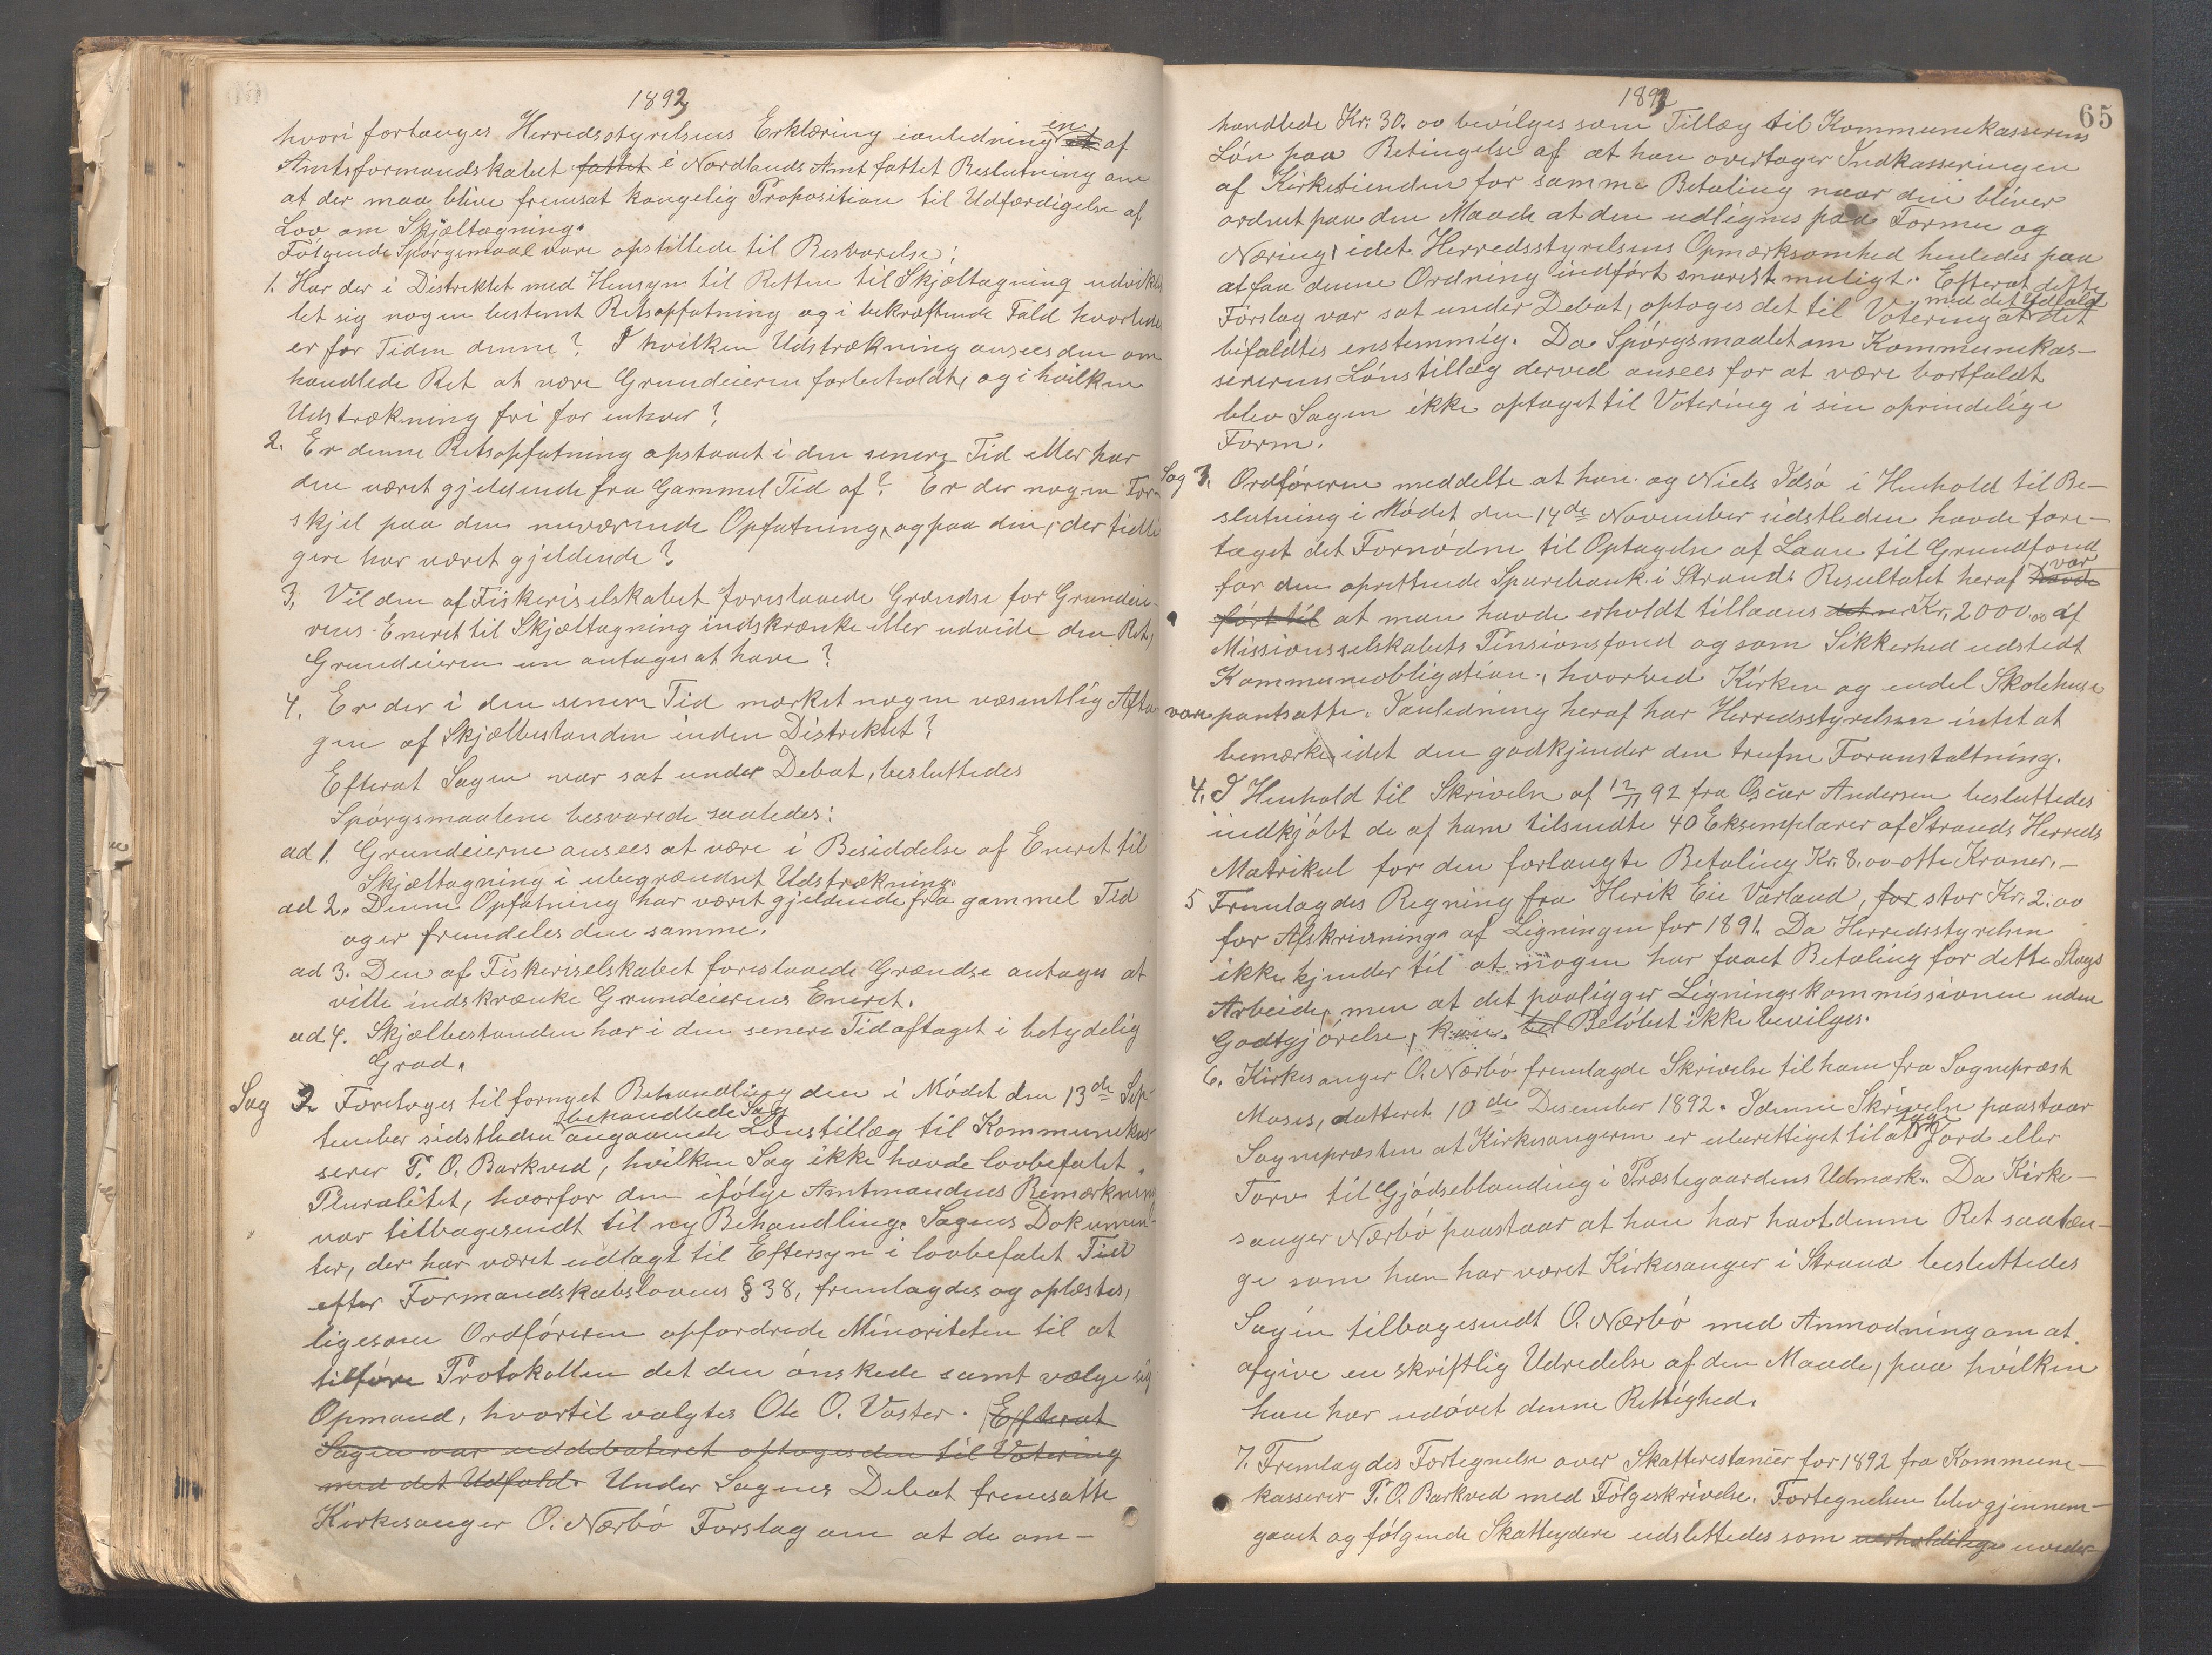 1893
hvori forlanges Herredsstyrelsens Erklæring ianledning en et af
Amtsformandskabet fattet i Nordlands Amt fattet Beslutning om
at der maa blive fremsat kongelig Proposition til Udfærdigelse af
Lov om Skjæltagning.
Følgende Spørgsmaal vare opstillede til Besvarelse:
1. Har der i Distriktet med Hensyn til Retten til Skjæltagning udvik
let sig nogen bestemt Retsopfatning og i bekræftende Fald hvorledes
er for Tiden denne? I hvilken Udstrækning ansees den om
handlede Ret at være Grundeieren forbeholdt, og i hvilken
Udstrækning fri for enhver?
2. Er denne Retsopfatning opstaaet i den senere Tid eller har
den været gjeldende fra Gammel Tid af? Er der nogen For
skjel paa den nuværende Opfatning, og paa den, der tidli
gere har været gjeldende?
3. Vil den af Fiskeriselskabet foreslaaede Grændse for Grundeie-
rens Eneret til Skjæltagning indskrænke eller udvide den Ret,
Grundeieren nu antages at have?
4. Er der i den senere Tid mærket nogen væsentlig Afta
gen af Skjælbestanden inden Distriktet?
Efterat Sagen var sat under Debat, besluttedes
Spørgsmaalene besvarede saaledes:
ad 1. Grundeierne ansees at være i Besiddelse af Eneret til
Skjæltagning i ubegrændset Udstrækning.
ad 2. Denne Opfatning har været gjeldende fra gammel Tid
og er fremdeles den samme.
ad 3. Den af Fiskeriselskabet foreslaaede Grændse antages at
ville indskrænke Grundeierens Eneret.
ad 4. Skjælbestanden har i den senere Tid aftaget i betydelig
Grad.
Sag 2 Foretoges til fornyet Behandling den i Mødet den 13de Sep-
tember sidstleden behandlede Sag angaaende Lønstillæg til Kommunekas-
serer T. O. Barkved, hvilken Sag ikke havde lovbefalet
Pluralitet, hvorfor den ifølge Amtmandens Bemærkning
var tilbagesendt til ny Behandling. Sagens Dokumen-
ter, der har været udlagt til Eftersyn i lovbefalet Tid
efter Formandskabslovens § 38, fremlagdes og oplæstes,
ligesom Ordføreren opfordrede Minoriteten til at
tilføre Protokollen det den ønskede samt vælge sig
Opmand, hvortil valgtes Ole O. Vaster. (Efterat
Sagen var uddebateret optoges den til Votering
med det Udfald. Under Sagens Debat fremsatte
Kirkesanger O. Nærbø Forslag om at de om-
1893
65
handlede Kr. 30.00 bevilges som Tillæg til Kommunekasserens
Løn paa Betingelse af at han overtager Indkasseringen
af Kirketienden for samme Betaling naar den bliver
ordnet paa den Maade at den udlignes paa Formue og
Næring, idet Herredsstyrelsens Opmærksomhed henledes paa
at faa denne Ordning indført snarest muligt. Efterat dette
Forslag var sat under Debat, optoges det til Votering med det Udfald at det
bifaldtes enstemmig. Da Spørgsmaalet om Kommunekas-
sererens Lønstillæg derved ansees for at være bortfaldt
blev Sagen ikke optaget til Votering i sin oprindelige
Form.
Sag 3. Ordføreren meddelte at han og Niels Idsø i Henhold til Be-
slutning i Mødet den 14de November sidstleden havde fore-
taget det Fornødne til Optagelse af Laan til Grundfond
for den oprettende Sparebank i Strand. Resultatet heraf var havde
ført til at man havde erholdt tillaans Kr. 2000.00 af
Missionsselskabets Pensionsfond og som Sikkerhed udstedt
Kommuneobligation, hvorved Kirken og endel Skolehuse
vare pantsatte. Ianledning heraf har Herredsstyrelsen intet at
bemærke, idet den godkjender den trufne Foranstaltning.
4. I Henhold til Skrivelse af 12/11 92 fra Oscar Andersen besluttedes
indkjøbt de af ham tilsendte 40 Eksemplarer af Strands Herreds
Matrikul for den forlangte Betaling Kr. 8.00 otte Kroner.-
5 Fremlagdes Regning fra Henrik Eie Varland, for stor Kr. 2.00
for Afskrivning af Ligningen for 1891. Da Herredsstyrelsen
ikke kjender til at nogen har faaet Betaling for dette Slags
Arbeide, men at det paaligger Ligningskommissionen uden
Godtgjørelse, kan Beløbet ikke bevilges.
6. Kirkesanger O. Nærbø fremlagde Skrivelse til ham fra Sognepræst
Moses, datteret 10de Desember 1892. I denne Skrivelse paastaar
Sognepræsten at Kirkesangeren er uberettiget til at tage Jord eller
Torv til Gjødseblanding i Præstegaardens Udmark. Da Kirke-
sanger Nærbø paastaar at han har havt denne Ret saalæn-
ge som han har været Kirkesanger i Strand besluttedes
Sagen tilbagesendt O. Nærbø med Anmodning om at
afgive en skriftlig Udredelse af den Maade, paa hvilken
han har udøvet denne Rettighed.
7. Fremlagdes Fortegnelse over Skatterestancer for 1892 fra Kommune-
kasserer T. O. Barkved med Følgeskrivelse. Fortegnelsen blev gjennem-
gaaet og følgende Skatteydere udslettedes som uerholdelige uveder-